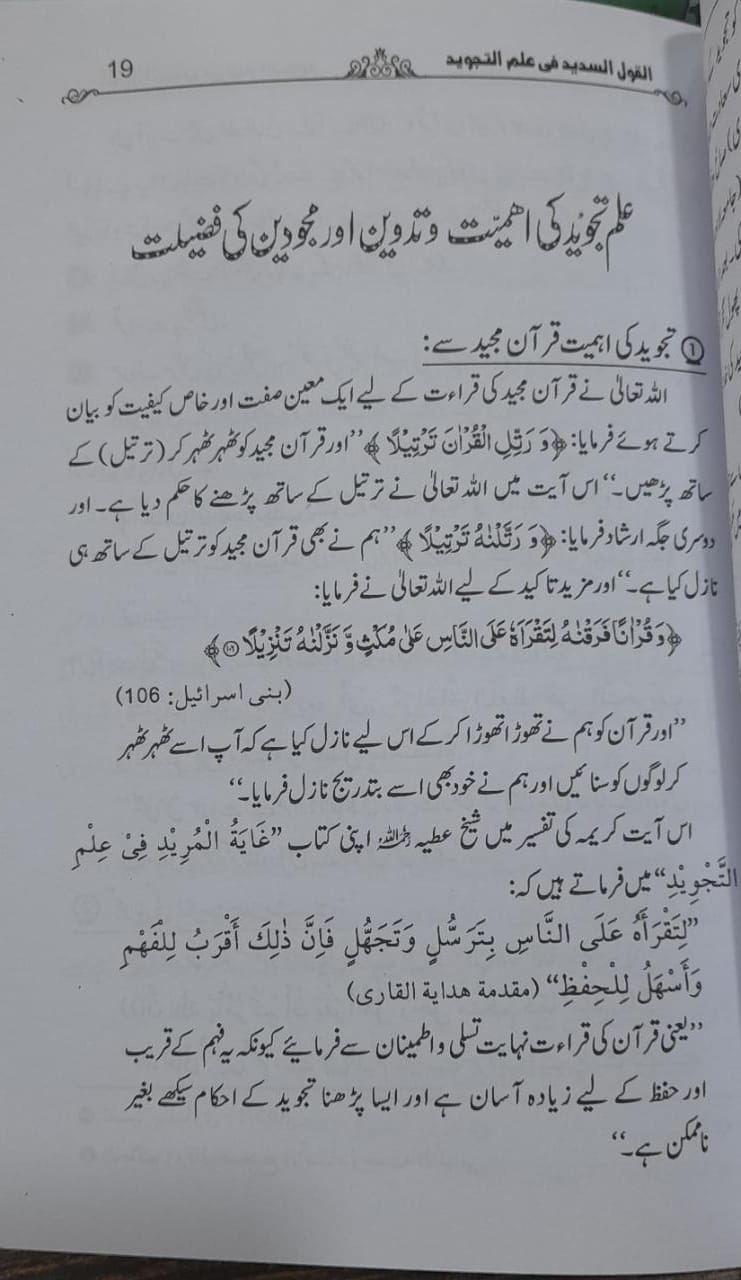 القول السديد فى علم التجويد 19
علم تجوید کی اہمیت و تدوین اور مجودین کی فضیلت
① تجوید کی اہمیت قرآن مجید سے:
اللہ تعالیٰ نے قرآن مجید کی قراءت کے لیے ایک معین صفت اور خاص کیفیت کو بیان
کرتے ہوئے فرمایا: ﴿وَ رَتِّلِ الْقُرْاٰنَ تَرْتِیْلًا﴾ ’’اور قرآن مجید کو ٹھہر ٹھہر کر (ترتیل) کے
ساتھ پڑھیں۔‘‘ اس آیت میں اللہ تعالیٰ نے ترتیل کے ساتھ پڑھنے کا حکم دیا ہے۔ اور
دوسری جگہ ارشاد فرمایا: ﴿وَ رَتَّلْنٰهُ تَرْتِیْلًا﴾ ’’ہم نے بھی قرآن مجید کو ترتیل کے ساتھ ہی
نازل کیا ہے۔‘‘ اور مزید تاکید کے لیے اللہ تعالیٰ نے فرمایا:
﴿وَ قُرْاٰنًا فَرَقْنٰهُ لِتَقْرَاَهٗ عَلَی النَّاسِ عَلٰی مُكْثٍ وَّ نَزَّلْنٰهُ تَنْزِیْلًا ۝۱۰۶﴾
(بنی اسرائیل: 106)
’’اور قرآن کو ہم نے تھوڑا تھوڑا کر کے اس لیے نازل کیا ہے کہ آپ اسے ٹھہر ٹھہر
کر لوگوں کو سنائیں اور ہم نے خود بھی اسے بتدریج نازل فرمایا۔‘‘
اس آیت کریمہ کی تفسیر میں شیخ عطیہ رحمہ اللہ اپنی کتاب ’’غَایَةُ الْمُرِیْدِ فِیْ عِلْمِ
التَّجْوِیْدِ‘‘ میں فرماتے ہیں کہ:
’’لِتَقْرَأَهُ عَلَى النَّاسِ بِتَرَسُّلٍ وَتَجَهُّلٍ فَإِنَّ ذٰلِكَ أَقْرَبُ لِلْفَهْمِ
وَأَسْهَلُ لِلْحِفْظِ‘‘ (مقدمة هداية القارى)
’’یعنی قرآن کی قراءت نہایت تسلی و اطمینان سے فرمائیے کیونکہ یہ فہم کے قریب
اور حفظ کے لیے زیادہ آسان ہے اور ایسا پڑھنا تجوید کے احکام سیکھے بغیر
ناممکن ہے۔‘‘